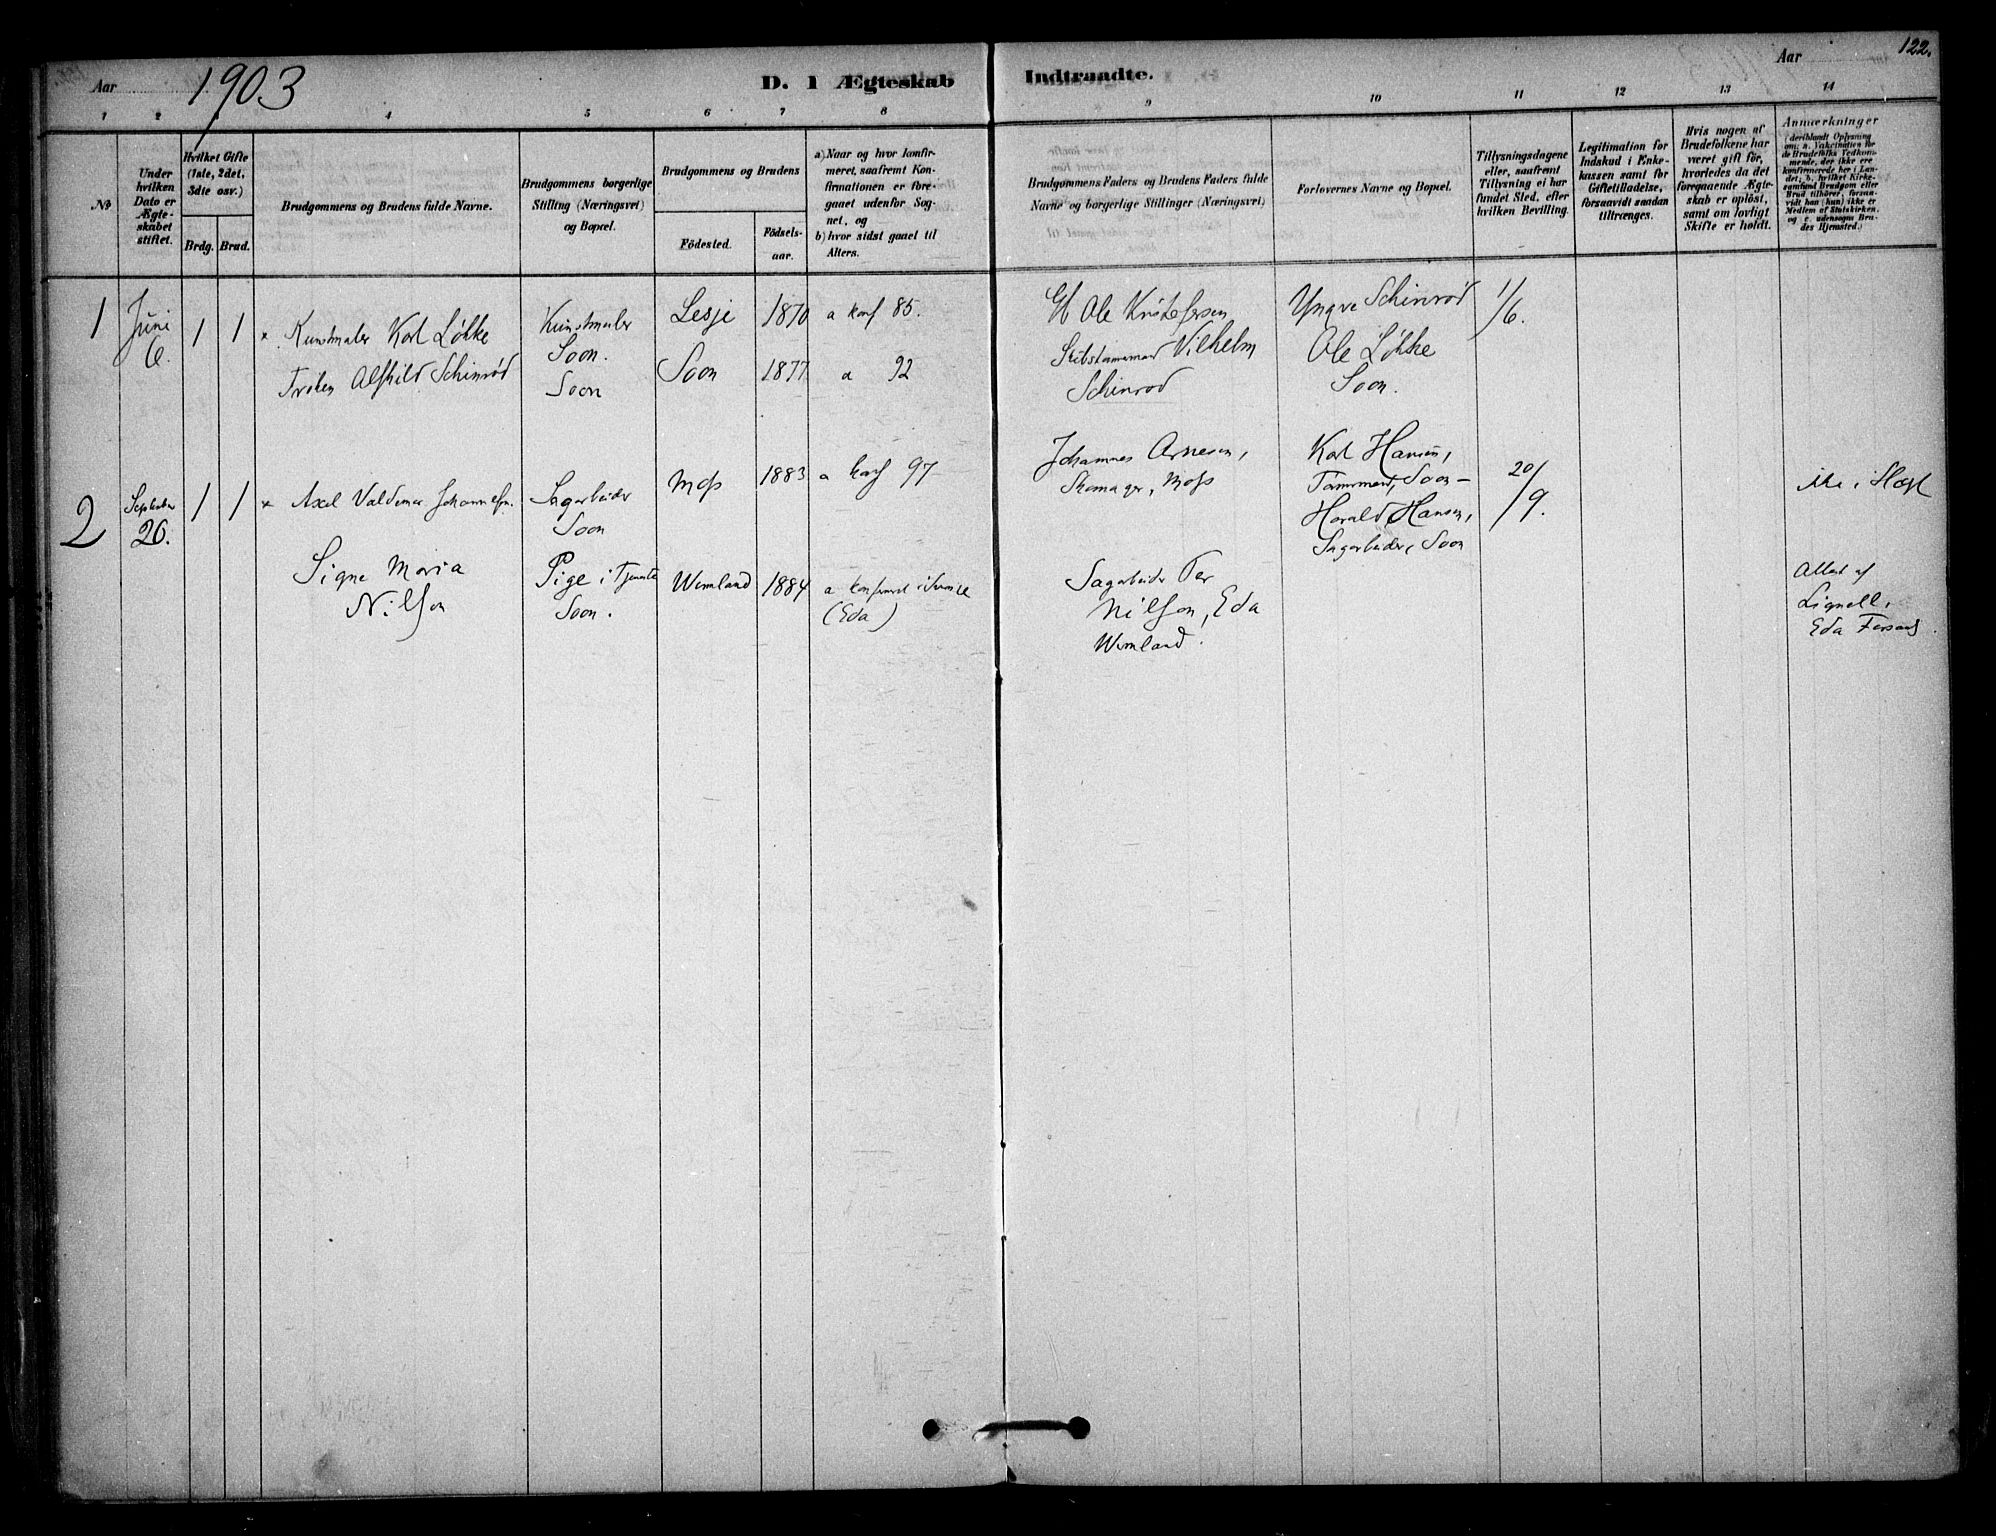 122.
Aar 1903
D. 1 Ægteskab Indtraadte.
Aar
1 2 3 4 5 6 7 8 9 10 11 12 13 14
No
Under hvilken Dato er Ægteskabet stiftet.
Hvilket Gifte (1ste, 2det, 3die osv.)
Brdg. Brud.
Brudgommens og Brudens fulde Navne.
Brudgommens borgerlige Stilling (Næringsvei) og Bopæl.
Brudgommens og Brudens
Födested.
Födsels-aar.
a) Naar og hvor konfirmeret, saafremt Konfirmationen er foregaaet udenfor Sognet, og
b) hvor sidst gaaet til Alters.
Brudgommens Faders og Brudens Faders fulde Navne og borgerlige Stillinger (Næringsvei)
Forlovernes Navne og Bopæl.
Tillysningsdagene eller, saafremt Tillysning ei har fundet Sted, efter hvilken Bevilling.
Legitimation for Indskud i Enkekassen samt for Giftetilladelse, forsaavidt saadan tiltrænges.
Hvis nogen af Brudefolkene har været gift för, hvorledes da det foregaaende Ægteskab er oplöst, samt om lovligt Skifte er holdt.
Anmærkninger
1
Juni
6.
1 1
Kunstmaler Karl Løkke
Frøken Alfhild Schinrød
Kunstmaler
Soon.
Soon
Lesje
Soon
1870
1877
a konf 85.
a 92
Gb Ole Kristofersen
Vilhelm
Schinrød
Yngve Schinrød
Ole Løkke
Soon.
1/6.
2
September
26.
1 1
Axel Valdemar Johannesen.
Signe Maria
Nilsson
Sagarbeider
Soon
Pige i Tjeneste
Soon.
Moss
Wermland
1883
1884
a konf 97
a konfirmeret i Sverige
(Eda)
Johannes Arnesen,
Skomager, Moss
Sagarbeider Per
Nilsson, Eda
Wermland.
Karl Hansen,
Tømmermand, Soon –
Harald Hansen,
Sagarbeider, Soon
20/9.
ikke i Slægt
Attest af
Lignell,
Eda Forsaml.